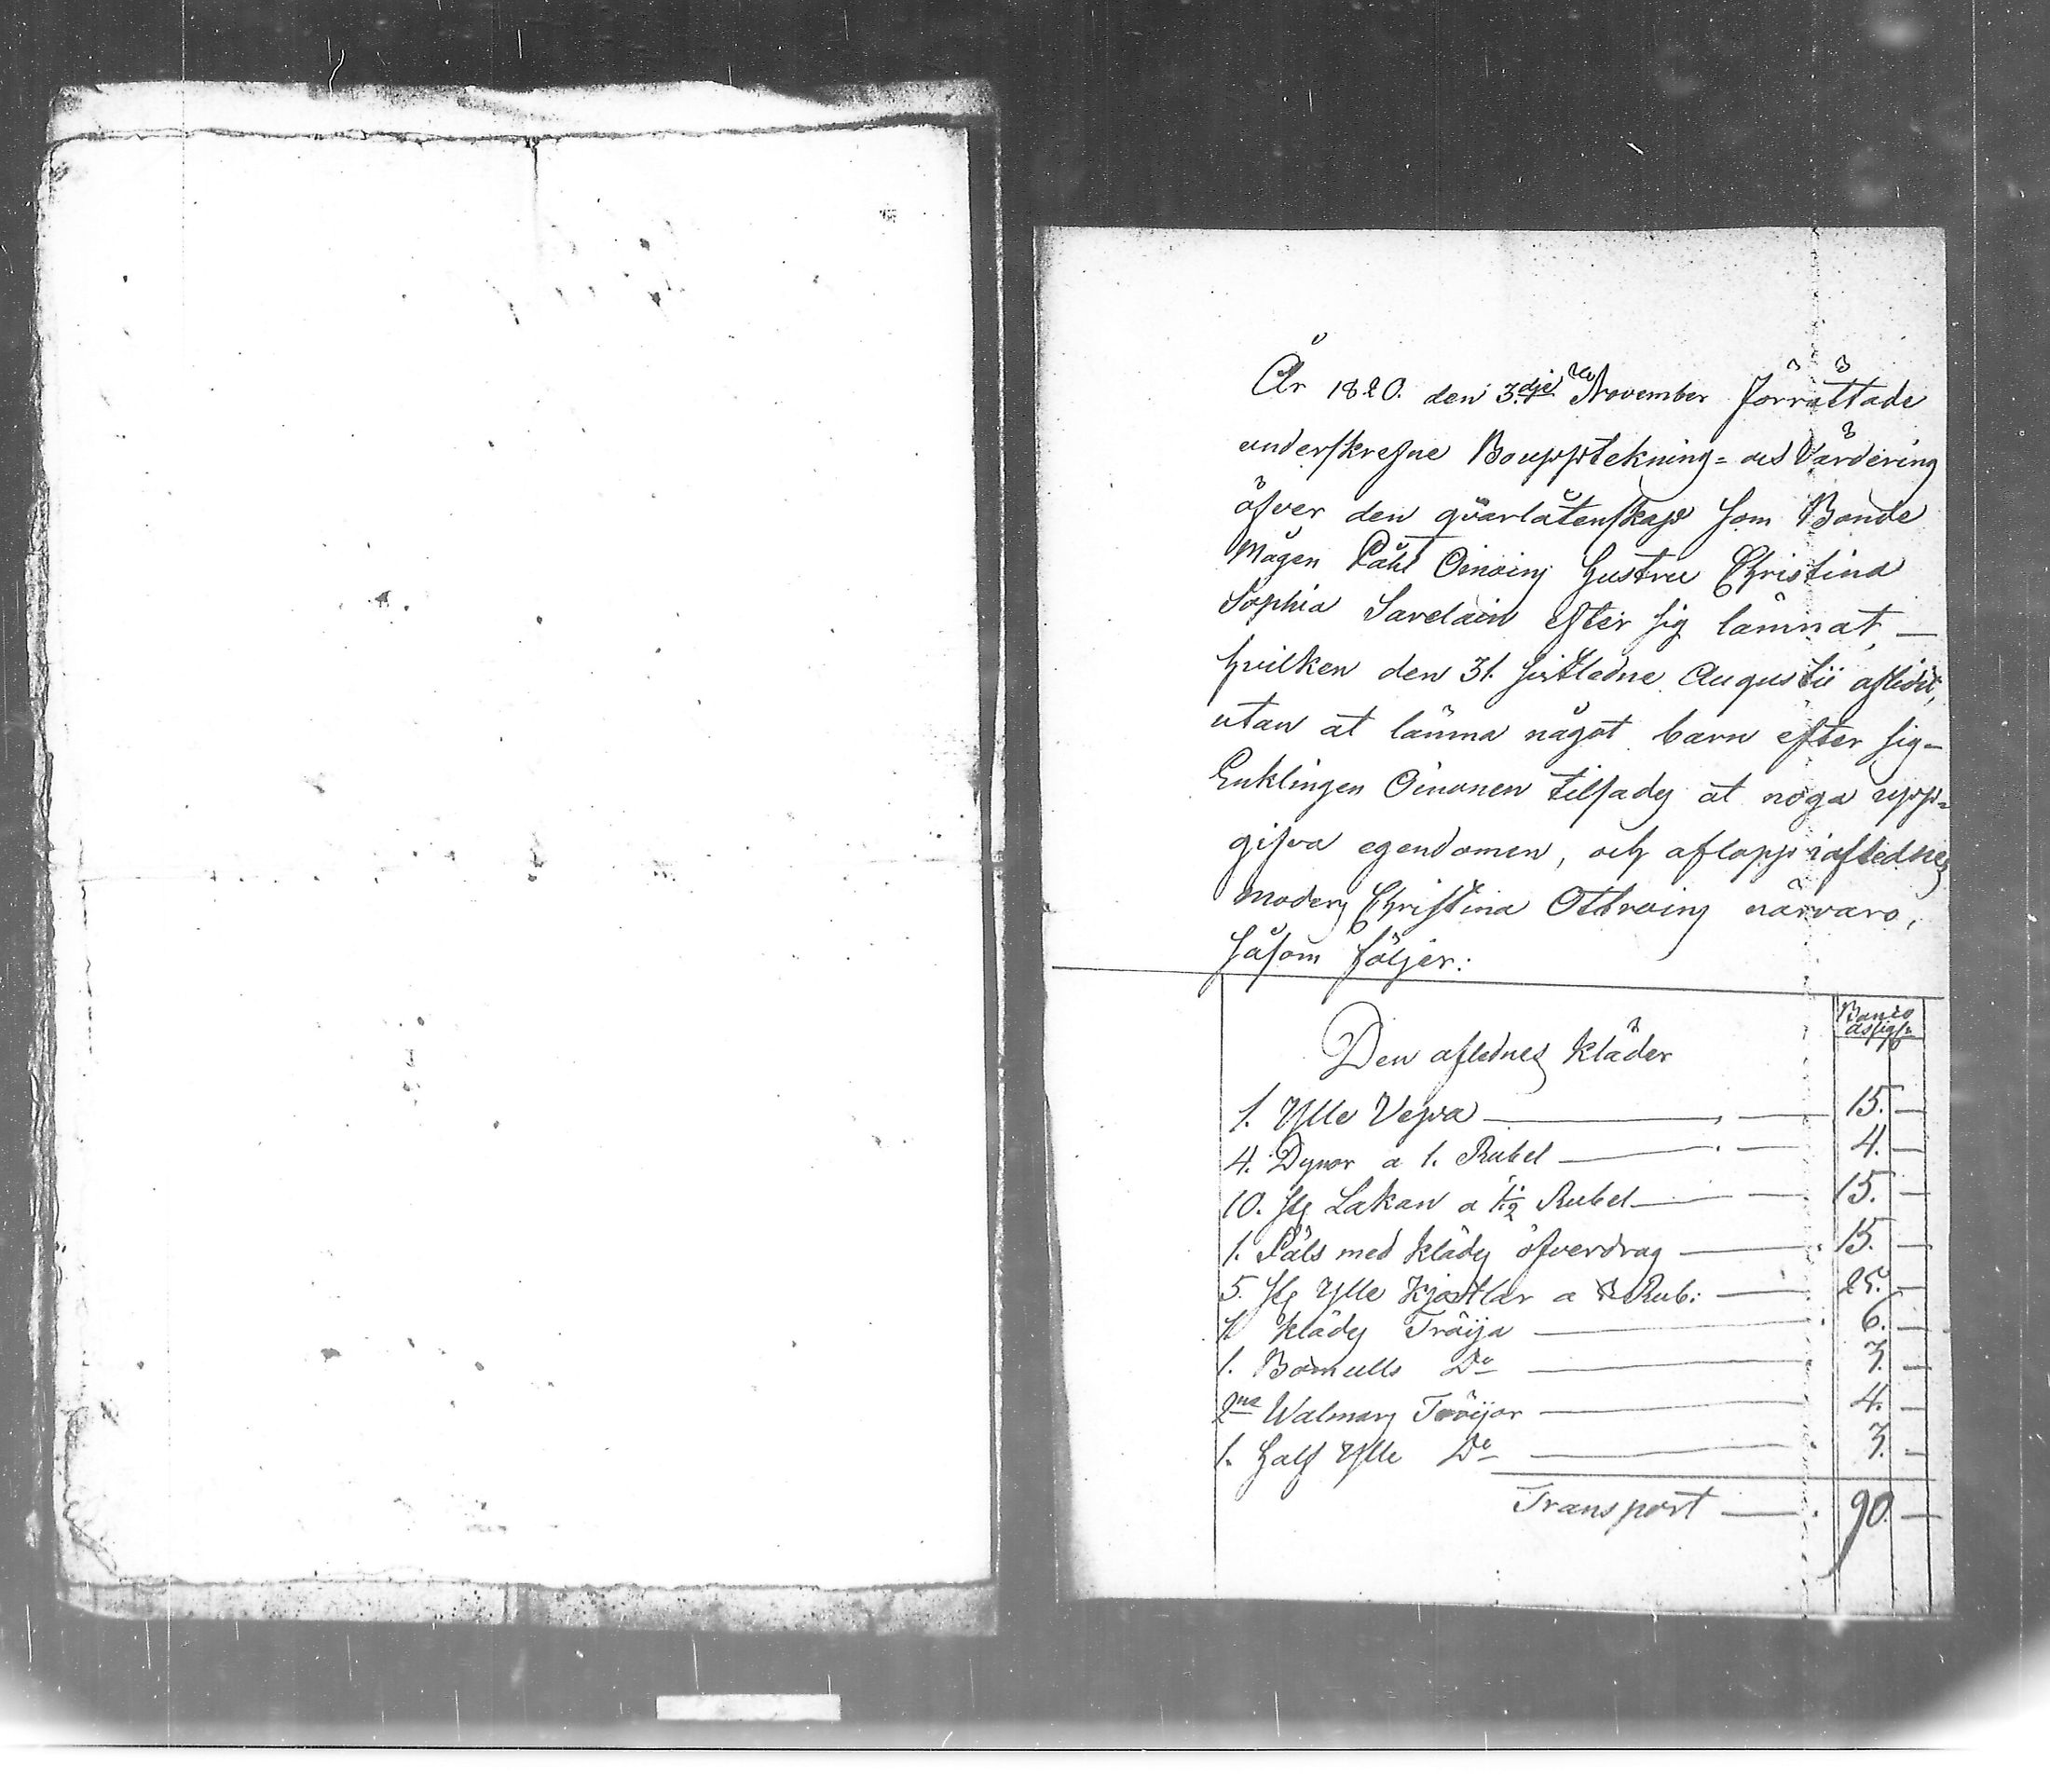 År 1820. den 3.dje November förrättade
underskrefne Bouppteknings= och Värdering
öfver den qvarlåtenskap som Bonde
Mågen Påhl Oinoins hustru Christina
Sophia Savelain efter sig lämnat,—
hvilken den 31. sistledne Augustii aflidit,
utan at lämna något barn efter sig—
Enklingen Oinonen tilsades at noga upp=
gifva egendomen, och aflopp i aflednes
moders Christina Ottroins närvaro,
såsom följer:
Banco assign:
Den aflednes kläder
1. Ylle Vepa — 15. —
4. Dynor a 1. Rubel — 4. —
10. st Lakan a 1 1/2 Rubel — 15. —
1. Päls med klädes öfverdrag — 15. —
5. st Ylle Kjortlar a 5 Rub: — 25. —
1. klädes Tröija — 6. —
1. Bomulls Do — 3. —
2ne Walmars Tröijor — 4. —
1. Half Ylle Do — 3. —
Transport — 90. —